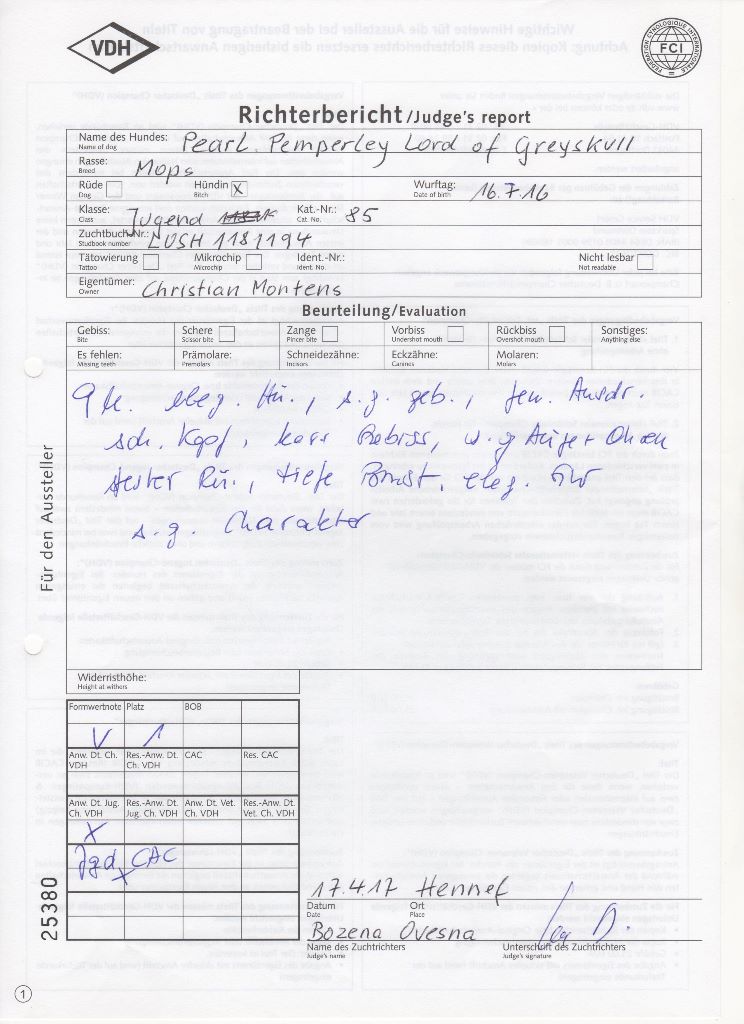 VDH
FEDERATION CYNOLOGIQUE INTERNATIONALE
FCI
Richterbericht/Judge's report
Name des Hundes: Pearl. Pemperley Lord of Greyskull
Name of dog
Rasse: Mops
Breed
Rüde Hündin X Wurftag: 16.7.16
Dog Bitch Date of birth
Klasse: Jugend Kat.-Nr.: 85
Class Cat. No.
Zuchtbuch-Nr.: LOSH 1181194
Studbook number
Tätowierung Mikrochip Ident.-Nr.: Nicht lesbar
Tattoo Microchip Ident. No. Not readable
Eigentümer: Christian Montens
Owner
Beurteilung/Evaluation
Gebiss: Schere Zange Vorbiss Rückbiss Sonstiges:
Bite Scissor bite Pincer bite Undershot mouth Overshot mouth Anything else
Es fehlen: Prämolare: Schneidezähne: Eckzähne: Molaren:
Missing teeth Premolars Incisors Canines Molars
eleg. Hü., s.g. geb., fem. Ausdr.
sch. Kopf, Gebiss, Augen Ohren
fester Rü., tiefe Brust, eleg.
s.g. Charakter
Für den Aussteller
Widerristhöhe:
Height at withers
Formwertnote Platz BOB
V 1
Anw. Dt. Ch. VDH Res.-Anw. Dt. Ch. VDH CAC Res. CAC
Anw. Dt. Jug. Ch. VDH Res.-Anw. Dt. Jug. Ch. VDH Anw. Dt. Vet. Ch. VDH Res.-Anw. Dt. Vet. Ch. VDH
X
Jgd CAC
X
25380
17.4.17 Hennef
Datum Ort
Date Place
Bozena Ovesna
Name des Zuchtrichters Unterschrift des Zuchtrichters
Judge's name Judge's signature
1